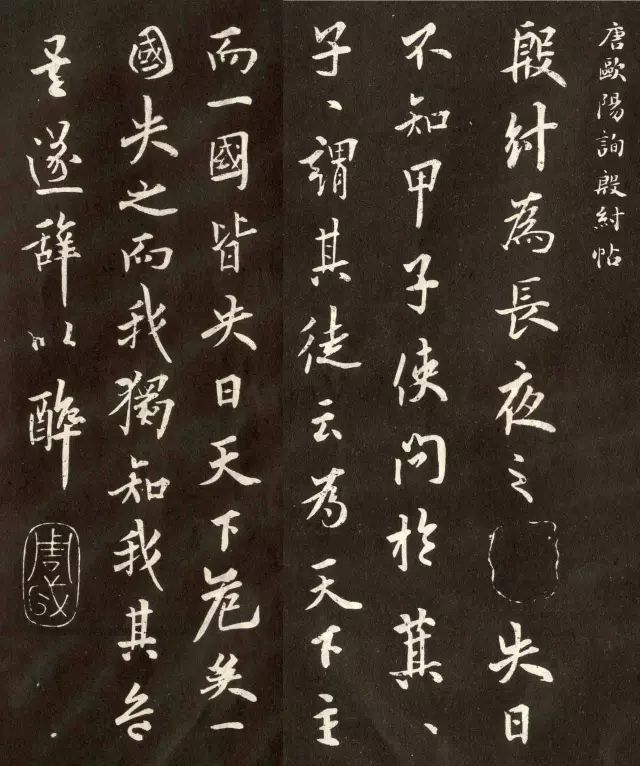 唐歐陽詢殷紂帖
殷紂為長夜之 失日
不知甲子使問於萁、
子、謂其徒云為天下主
而一國皆失日天下危矣一
國失之而我獨知我其危
矣遂辞以醉